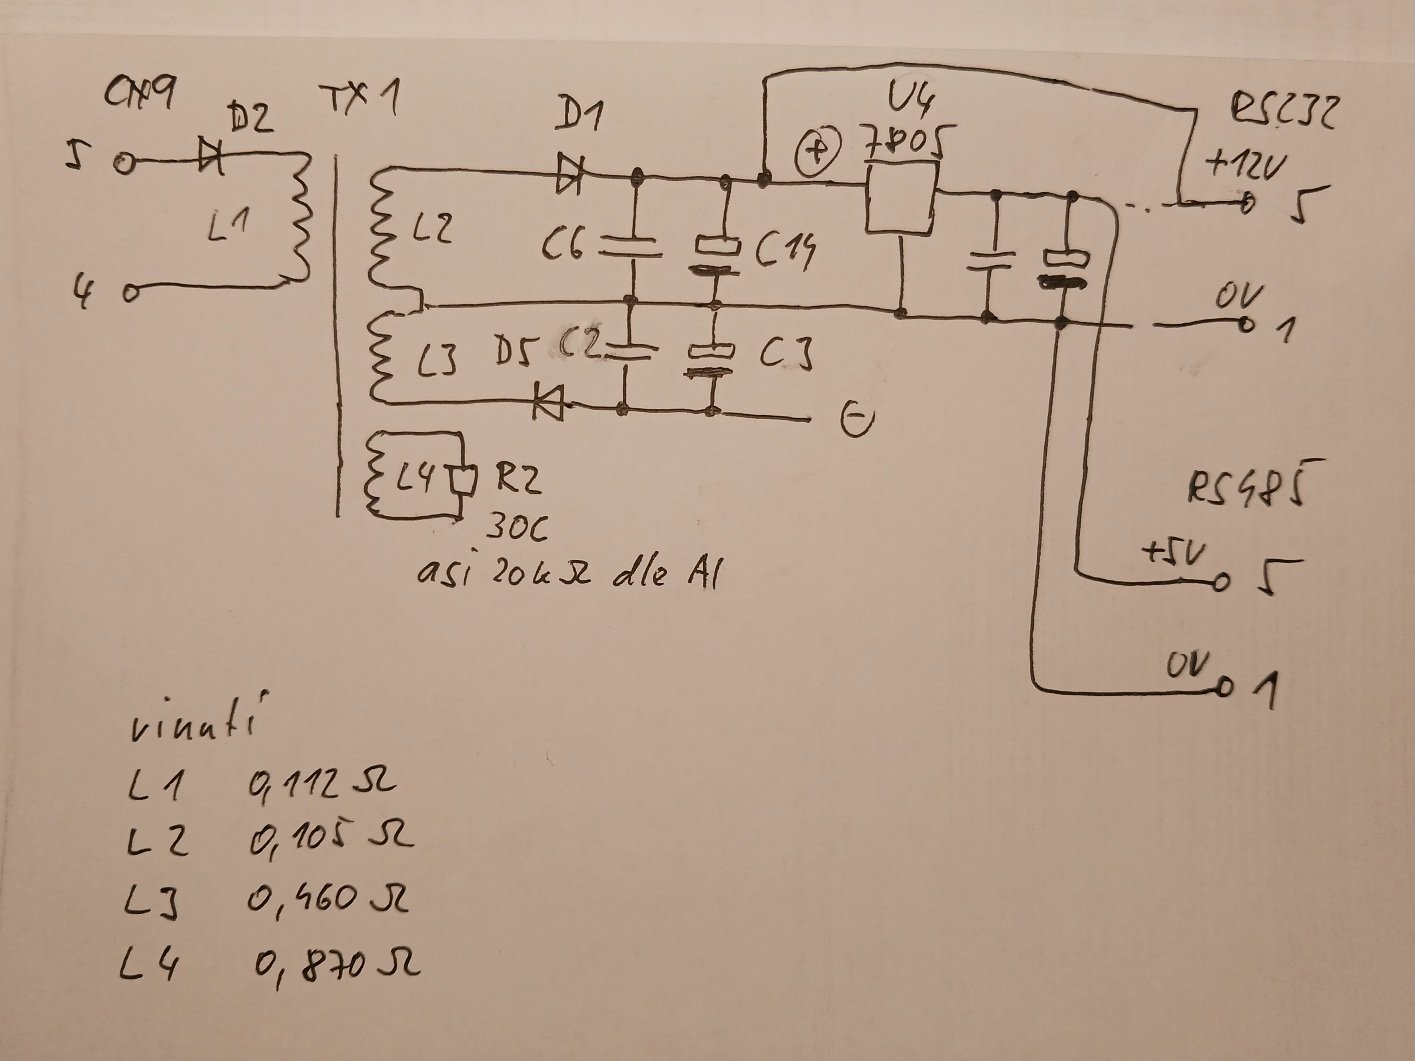 CN9
D2
TX1
D1
U4
7805
RS232
+12V
5
5
L1
L2
C6
C14
+
4
0V
1
L3
D5
C2
C3
-
L4
R2
30C
asi 20kΩ dle AI
RS485
+5V
5
0V
1
vinutí
L1 0,112 Ω
L2 0,105 Ω
L3 0,460 Ω
L4 0,870 Ω